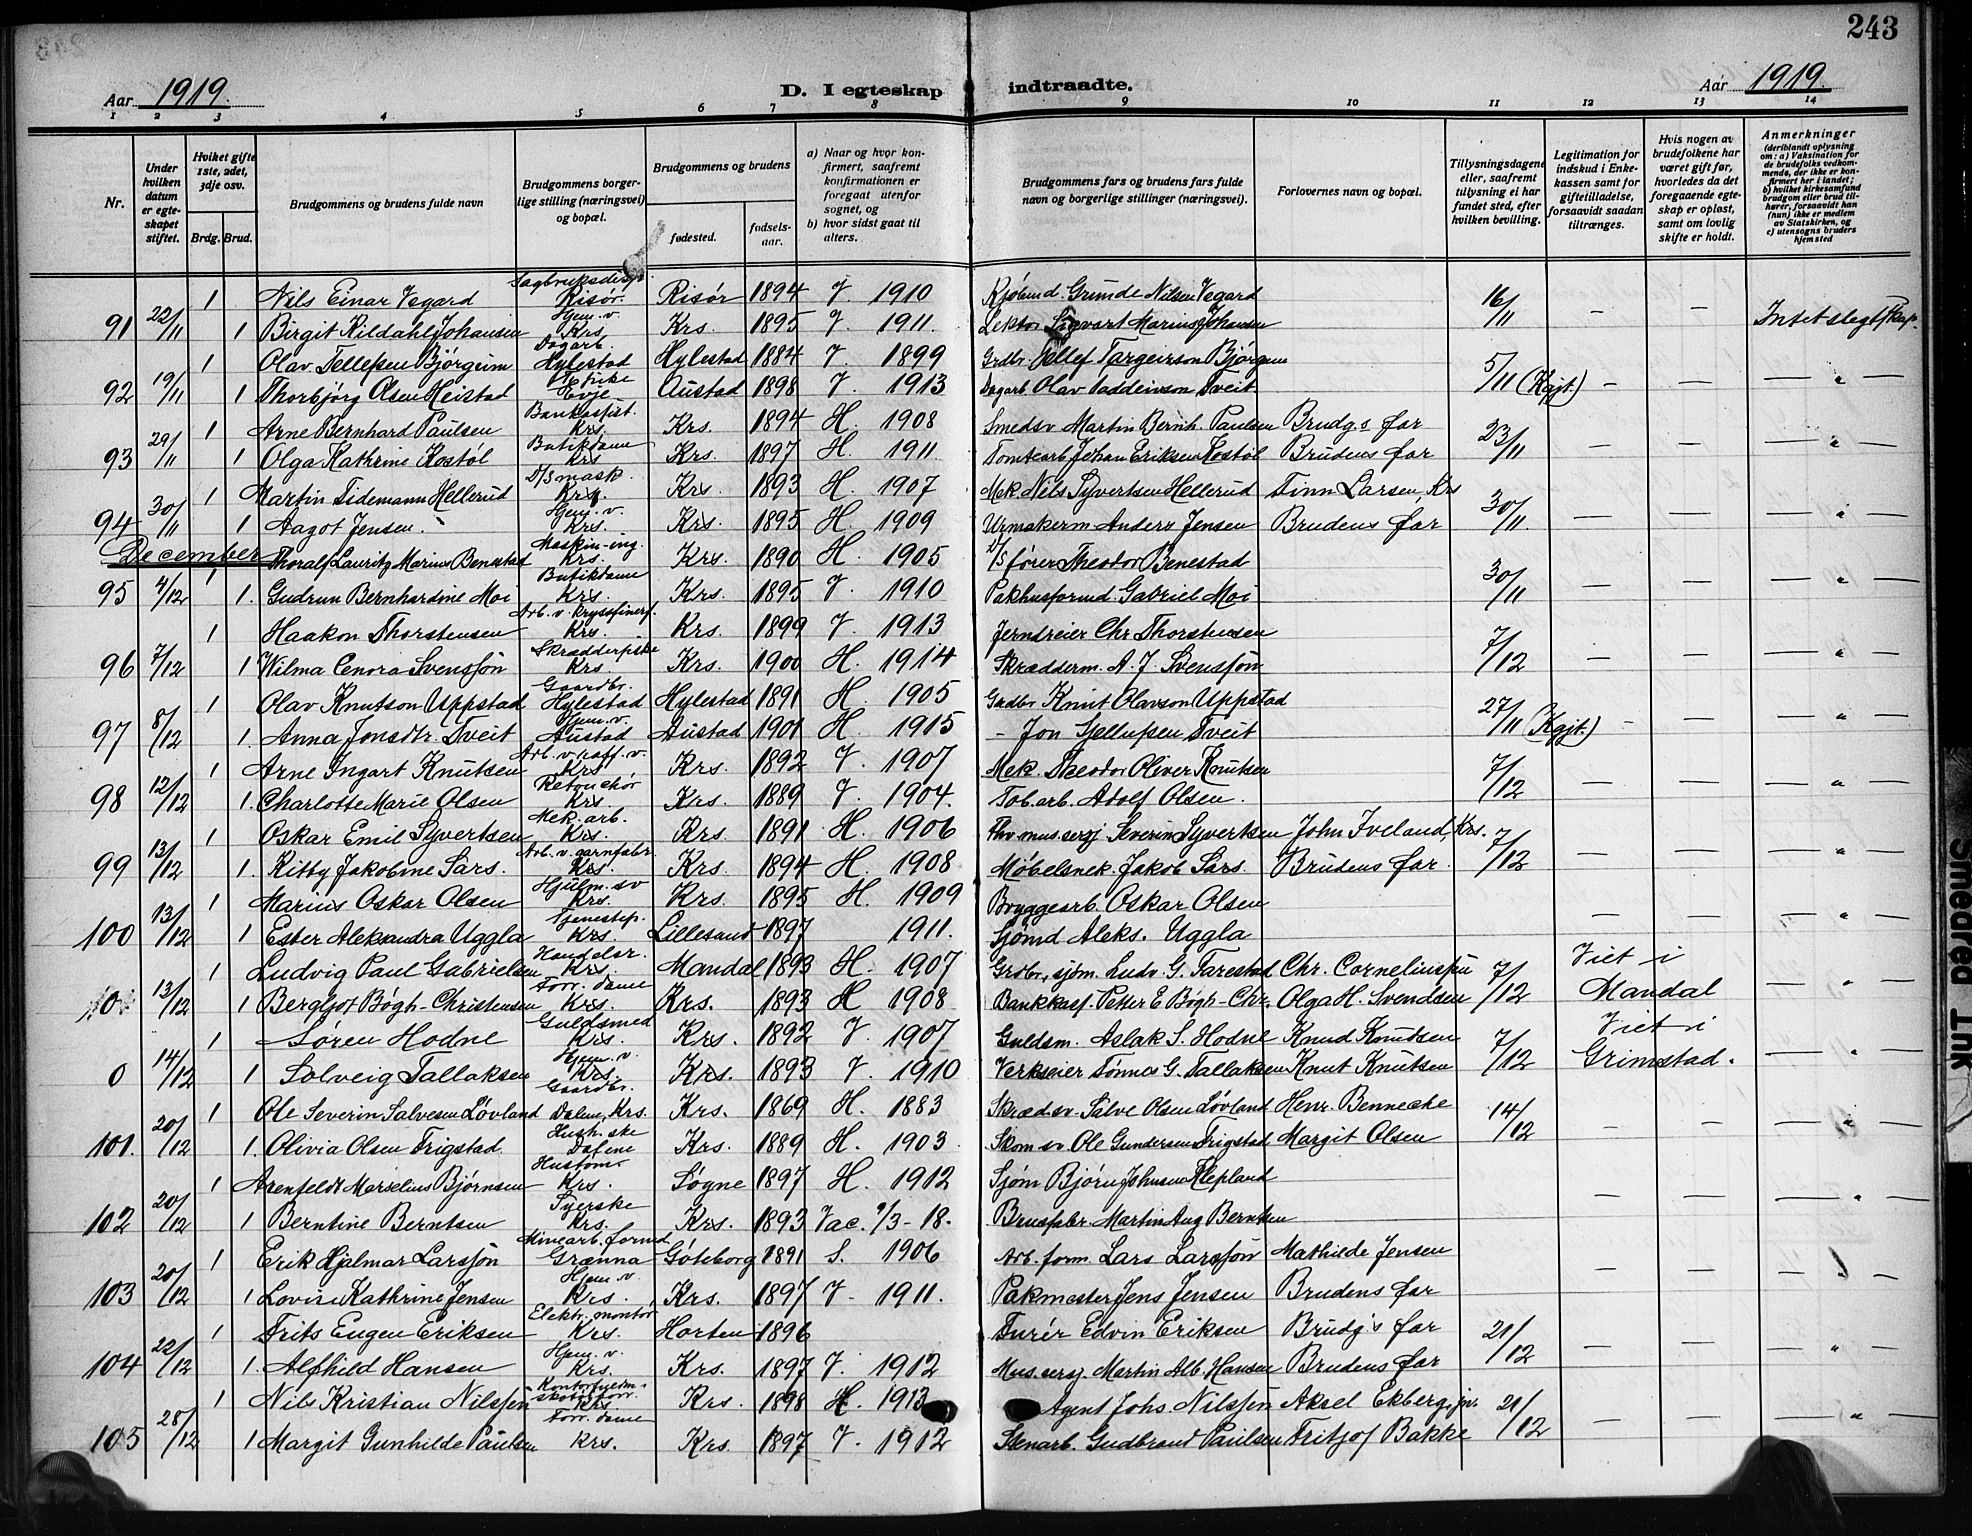 243
Aar 1919. D. I egteskap indtraadte. Aar 1919.
1 2 3 4 5 6 7 8 9 10 11 12 13 14
Nr.
Under hvilken datum er egteskapet stiftet.
Hviket gifte 1ste, 2det, 3dje osv.
Brdg. Brud.
Brudgommens og brudens fulde navn
Brudgommens borgerlige stilling (næringsvei) og bopæl.
Brudgommens og brudens
fødested. fødselsaar.
a) Naar og hvor konfirmert, saafremt konfirmationen er foregaaet utenfor sognet, og
b) hvor sidst gaat til alters.
Brudgommens fars og brudens fars fulde navn og borgerlige stillinger (næringsvei).
Forlovernes navn og bopæl.
Tillysningsdagene eller, saafremt tillysning ei har fundet sted, efter hvilken bevilling.
Legitimation for indskud i Enkekassen samt for giftetilladelse, forsaavidt saadan tiltrænges.
Hvis nogen av brudefolkene har været gift før, hvorledes da det foregaaende egteskap er opløst, samt om lovlig skifte er holdt.
Anmerkninger (deriblandt oplysning om: a) Vaksination for de brudefolks vedkommende, der ikke er konfirmert her i landet; b) hvilket kirkesamfund brudgom eller brud tilhører, forsaavidt han (hun) ikke er medlem av Statskirken, og c) utensogns bruders hjemsted
1 Nils Einar Vegard Risør. Risør 1894 V. 1910 Kjøbmd. Grunde Nilsen Vegard 16/11 — —
91 22/11 1 Birgit Kildahl Johansen Hjem. v. Krs. Krs. 1895 V. 1911. Lektor Sigvart Marius Johansen Intet slegtskap.
1 Olav Tellefsen Bjørgum Dagarb. Hylestad Hylestad 1884 V. 1899 Grdbr. Tellef Targeirson Bjørgum 5/11 (Kgjt.) — — — " —
92 19/11 1 Thorbjørg Olsen Heistad Evje Austad 1898 V. 1913 Dagarb. Olav Taddeivson Tveit
1 Arne Bernhard Paulsen Bankassist. Krs. Krs. 1894 H. 1908 Smedsv Martin Bernh. Paulsen Brudg.s far 23/11 — — — " —
93 29/11 1 Olga Kathrine Kostøl Butikdame Krs Krs. 1897 H. 1911. Tomtearb. Johan Eriksen Kostøl Brudens far
1 Martin Tidemann Hellerud D/S mask. Krs. Krs 1893 H. 1907 Mek. Nils Syvertsen Hellerud Finn Larsen, Krs 30/11. — — — " —
94 30/11 1 Aagot Jensen. Hjem. v. Krs. Krs. 1895 H. 1909 Urmakerm. Anders Jensen Brudens far
December
1 Thoralf Lauritz Marius Benestad Maskin-ing. Krs. Krs. 1890 H. 1905 D/S fører Theodor Benestad 30/11 — — — " —
95 4/12 1. Gudrun Bernhardine Moi Butikdame Krs. Krs. 1895 V. 1910 Pakhusformd. Gabriel Moi
1 Haakon Thorstensen Arb. v. Krs. Krs. 1899 V. 1913 Jerndreier Chr. Thorstensen 7/12 — — — " —
96 7/12 1 Wilma Lenora Svensson Skrædderpike Krs Krs. 1900 H. 1914 Skrædderm. A. J. Svensson
1 Olav Knutson Uppstad Gaardbr. Hylestad Hylestad 1891 H. 1905 Grdbr Knut Olavson Uppstad 27/11 (Kgjt.) — — — " —
97 8/12 1. Anna Jonsdtr. Tveit Hjem. v. Austad Austad 1901 H. 1915 - Jon Gjellufsen Tveit
1 Arne Ingart Knutsen Arb. v. raff. v. Krs Krs. 1892 V. 1907 Mek. Theodor Oliver Knutsen 7/12 — — — " —
98 12/12 1. Charlotte Marie Olsen Retouchør Krs. Krs. 1889 V. 1904. Tob. arb. Adolf Olsen.
1 Oskar Emil Syvertsen Mek. arb. Krs. Krs. 1891 H. 1906 Severin Syvertsen John Iveland, Krs. 7/12 — — — " —
99 13/12 1. Kitty Jakobine Sars. Arb. v. garnfabr. Krs. Krs. 1894 H. 1908 Møbelsnek. Jakob Sars. Brudens far.
1 Marius Oskar Olsen Hjulm. sv Krs. Krs. 1895 H. 1909 Bryggearb. Oskar Olsen
100 13/12 1 Ester Aleksandra Uggla Tjenestep. Krs. Lillesand 1897 1911. Sjømd Aleks. Uggla — — — " —
1 Ludvig Paul Gabrielsen Handelsr. Krs. Mandal 1893 H. 1907 Grdbr., sjøm. Ludv. G. Tarestad Chr. Corneliussen 7/12 Viet i Mandal
0 13/12 1 Bergljot Bøgh-Christensen Forr. dame Krs. Krs. 1893 H 1908 Bankkass. Petter E Bøgh-Chr. Olga H. Svendsen
1 Søren Hodne Guldsmed Krs. Krs. 1892 V. 1907 Guldsm. Aslak S. Hodne Knud Knudsen 7/12 Viet i Grimstad.
0 14/12 1 Solveig Tallaksen Hjem. v. Krs. Krs. 1893 V. 1910 Verkseier Tønnes G. Tallaksen Knut Knutsen
1 Ole Severin Salvesen Løvland Gaardbr. Dalen, Krs. Krs. 1869 H. 1883 Skræd.sv. Salve Olsen Løvland Henr. Bennecke 14/12 — — — " —
101. 20/12 1. Olivia Olsen Frigstad Krs. 1889 H. 1903 Skom. sv Ole Gundersen Frigstad Margit Olsen
1 Arenfeldt Marselius Bjørnsen Krs. Søgne 1897 H. 1912 Sjøm Bjørn Johnsen Klepland
102 20/12 1 Berntine Berntsen Syerske Krs. Krs. 1893 Vac. 9/3-18. Brusfabr. Martin Aug Berntsen — — — " —
1 Erik Hjalmar Larssøn Minearb. formd Grænna Göteborg 1891 S. 1906 Arb. form Lars Larssøn Mathilde Jensen
103 20/12 1 Lovise Kathrine Jensen Hjem. v Krs. Krs. 1897 V. 1911. Pakmester Jens Jensen Brudens far
1 Frits Eugen Eriksen Elektr. montør Krs. Horten 1896 Furér Edvin Eriksen Brudg's far 21/12 — — — " —
104 22/12 1. Alfhild Hansen Hjem. v. Krs. Krs. 1897 V. 1912 Mus. sersj. Martin Alb. Hansen Brudens far
1 Nils Kristian Nilssen Krs Krs. 1898 H. 1913 Agent Johs Nilssen Aksel Ekberg, jn. 21/12 — — — " —
105 28/12 1 Margit Gunhilde Paulsen Forr. dame Krs. Krs. 1897 V. 1912 Stenarb. Gudbrand Paulsen Fritjof Bakke
Smedred Ink